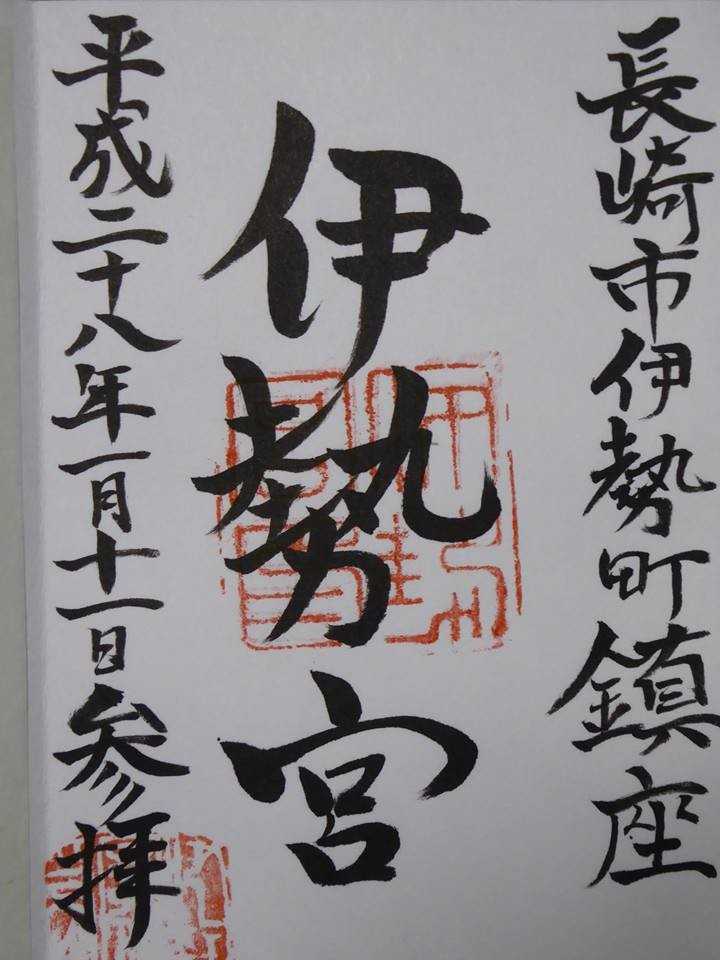 長崎市伊勢町鎮座
伊勢宮
平成二十八年一月十一日参拝